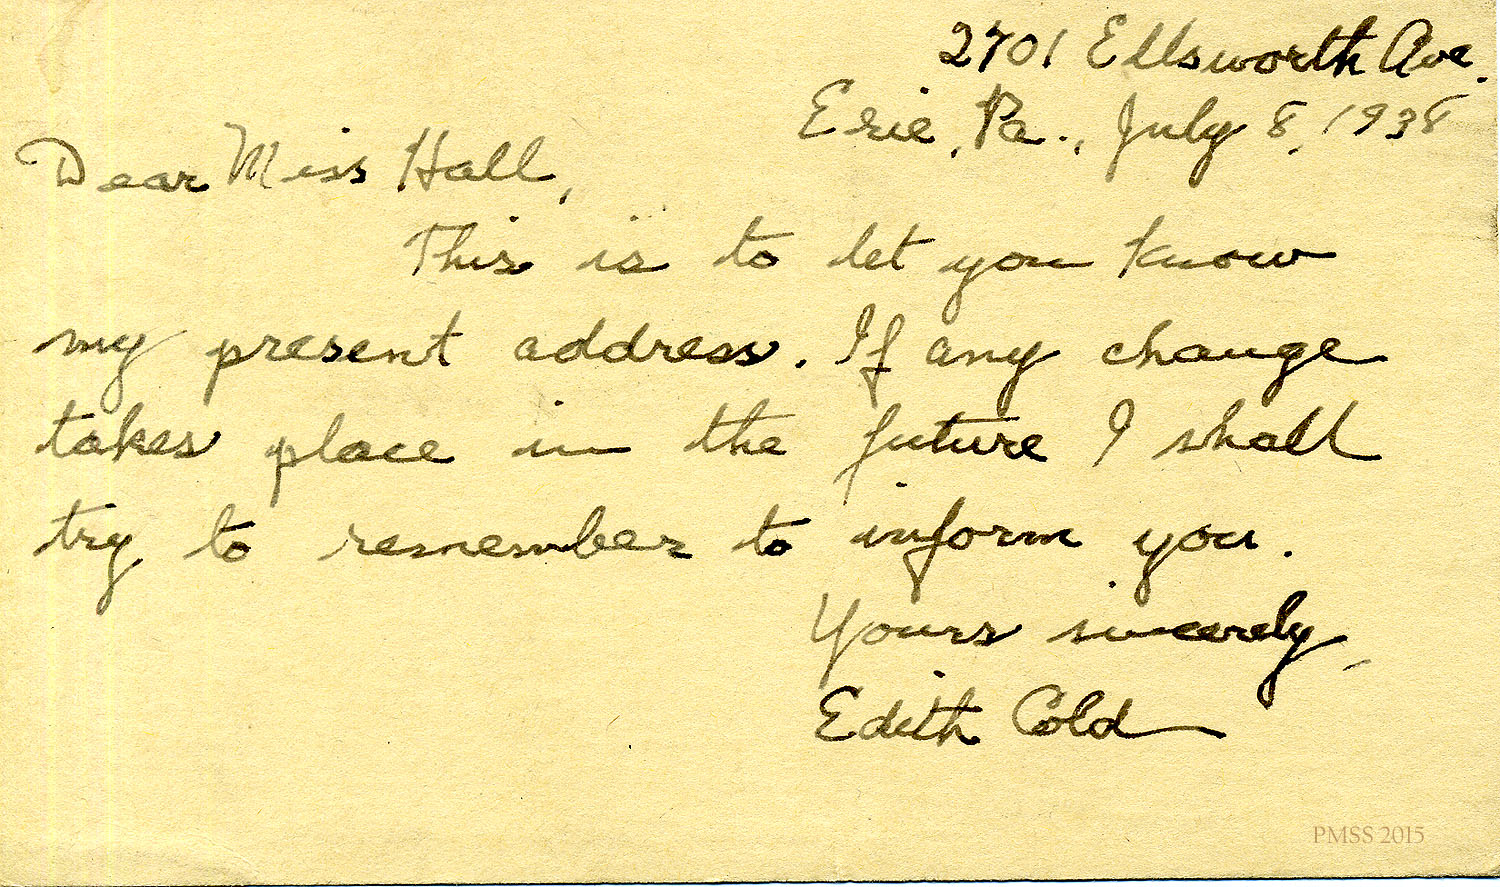 2701 Ellsworth Ave.
Erie, Pa., July 8, 1938
Dear Miss Hall,
This is to let you know
my present address. If any change
takes place in the future I shall
try to remember to inform you.
Yours sincerely,
Edith Cold
PMSS 2015